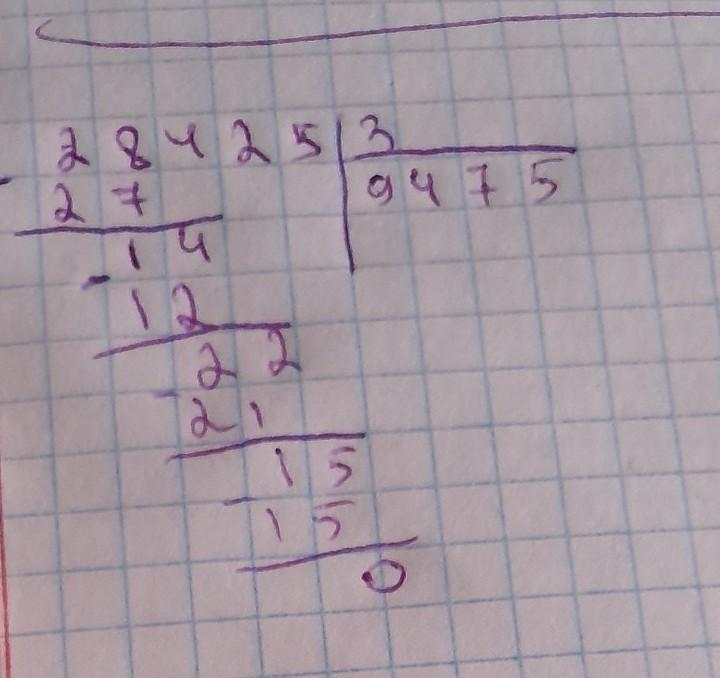 28425 3
27 9475
-14
12
-22
21
-15
15
0